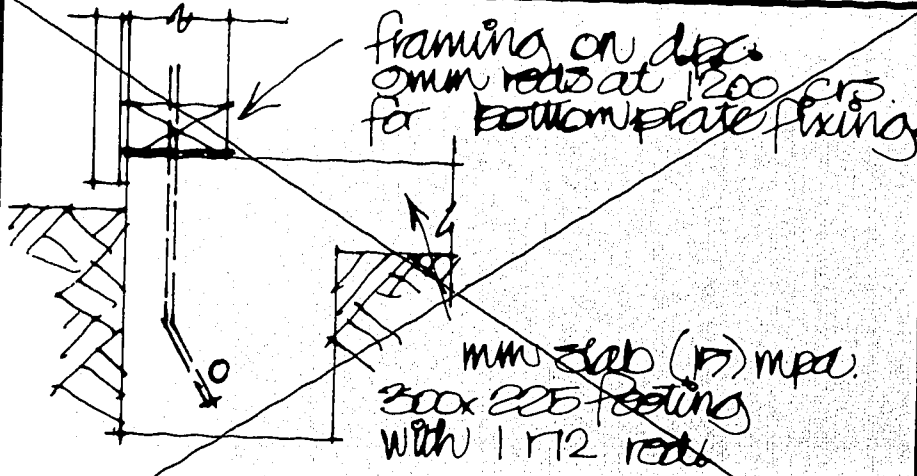 framing on dpc.
9mm rods at 1200 crs.
for bottom plate fixing
mm slab (17) mpa.
300x 225 footing
with 1 r12 rod.